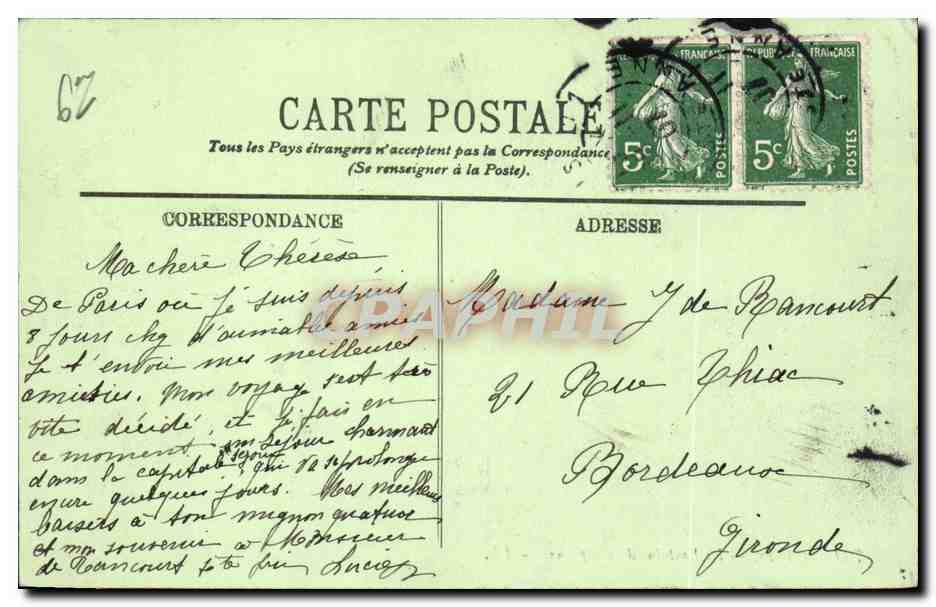 62
CARTE POSTALE
Tous les Pays étrangers n'acceptent pas la Correspondance
(Se renseigner à la Poste).
REPUBLIQUE FRANÇAISE
5c
POSTES
REPUBLIQUE FRANÇAISE
5c
POSTES
CORRESPONDANCE
Ma chère Thérèse
De Paris où je suis depuis
8 jours chg d'aimable amies
Je t'envoie mes meilleures
amitiés. Mon voyage s'est très
vite décidé, et je fais en
ce moment un séjour charmant
dans la capitale séjour qui va se prolonger
encore quelques jours. Mes meilleurs
baisers à ton mignon quatuor
et mon souvenir à Monsieur
de Rancourt
ADRESSE
Madame J de Rancourt
21 Rue Thiac
Bordeaux
Gironde
CPAPHIL